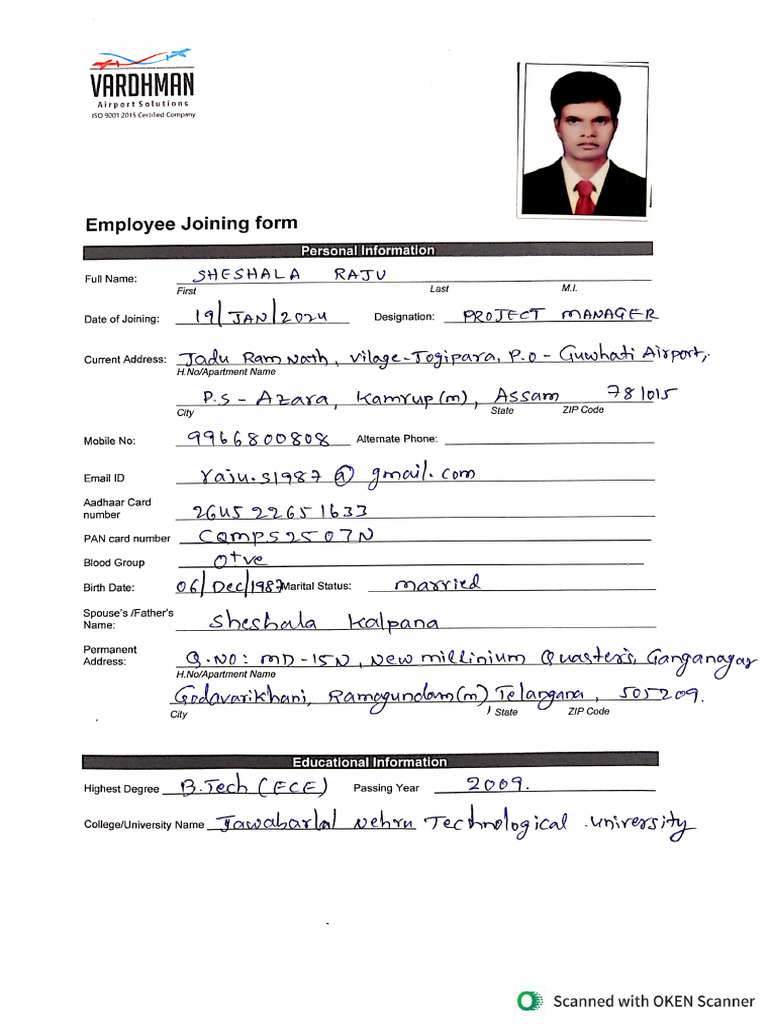 VARDHMAN
Airport Solutions
ISO 9001:2015 Certified Company
Employee Joining form
Personal Information
Full Name: SHESHALA RAJU
First Last M.I.
Date of Joining: 19/JAN/2024 Designation: PROJECT MANAGER
Current Address: Jadu Ram Nath, Vilage-Jogipara, P.O - Guwhati Airport,
H.No/Apartment Name
P.S - Azara, Kamrup(m), Assam 781015
City State ZIP Code
Mobile No: 9966800808 Alternate Phone:
Email ID raju.s1987@gmail.com
Aadhaar Card
number 2645 2265 1633
PAN card number CQMPS2507N
Blood Group O+ve
Birth Date: 06/Dec/1987 Marital Status: married
Spouse's /Father's
Name: Sheshala Kalpana
Permanent
Address: Q.NO: MD-15N, New millinium Quaster's, Ganganagar
H.No/Apartment Name
Godavarikhani, Ramagundam(m) Telangana, 505209.
City State ZIP Code
Educational Information
Highest Degree B.Tech (ECE) Passing Year 2009.
College/University Name Jawaharlal Nehru Technological university
Scanned with OKEN Scanner